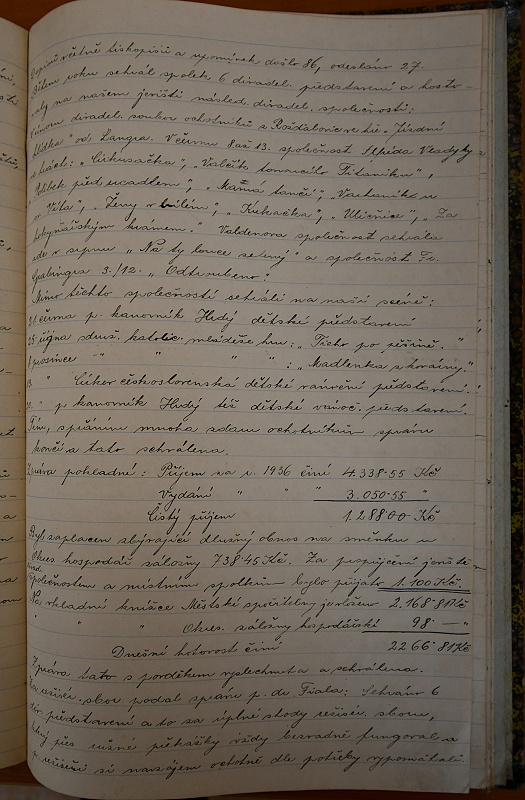 Dopisů včetně tiskopisů a upomínek došlo 86, odesláno 27.
Během roku sehrál spolek 6 divadel. představení a hosto-
valy na našem jevišti násled. divadel. společnosti:
divadel. soubor ochotníků z Rožďalovic ve hře „Jízdní
hlídka" od Langra. V červnu 8 až 13. společnost Alfréda
hrách: „Cirkusačka", „Valčík tonoucího Titaniku",
Polibek před zrcadlem", „Máma tančí", „Vachmajstr u
sv. Víta", „Ženy v bílém", „Kukačka", „Uličnice", „Za
hokynářským krámem." Valdenova společnost sehrála
zde v srpnu „Na tý louce zelený" a společnost Fr.
3./12. „Odtroubeno".
Mimo těchto společností sehráli na naší scéně:
21. června p. kanovník Hrdý dětské představení
25. října druž. katolic. mládeže hru: „Těžko po pěšině."
prosince " " " " : „Madlenka z kovárny."
13. " Církev československá dětské vánoční představení.
20. " p. kanovník Hrdý též dětské vánoč. představení.
Tím, s přáním mnoha zdaru ochotníkům zprávu
končí a tato schválena.
Zpráva pokladní: Příjem za r. 1936 činí 4.338·55 Kč
Vydání " " " 3.050·55 "
Čistý příjem 1.288·00 Kč
Byl zaplacen zbývající dlužný obnos na směnku u
Okres. hospodář. záložny 738·45 Kč. Za propůjčení jeviště
společnostem a místním spolkům bylo přijato 1.100 Kč.
Na vkladní knížce Městské spořitelny uloženo 2.168·81 Kč
" " " Okres. záložny hospodářské 98·— "
Dnešní hotovost činí 2266·81 Kč
Zpráva tato s povděkem vyslechnuta a schválena.
Za režisér. sbor podal zprávu p. dr. Fiala: Sehráno 6
představení a to za úplné shody režisér. sboru,
který přes různé překážky vždy bezvadně fungoval a
režiséři si navzájem ochotně dle potřeby vypomáhali.